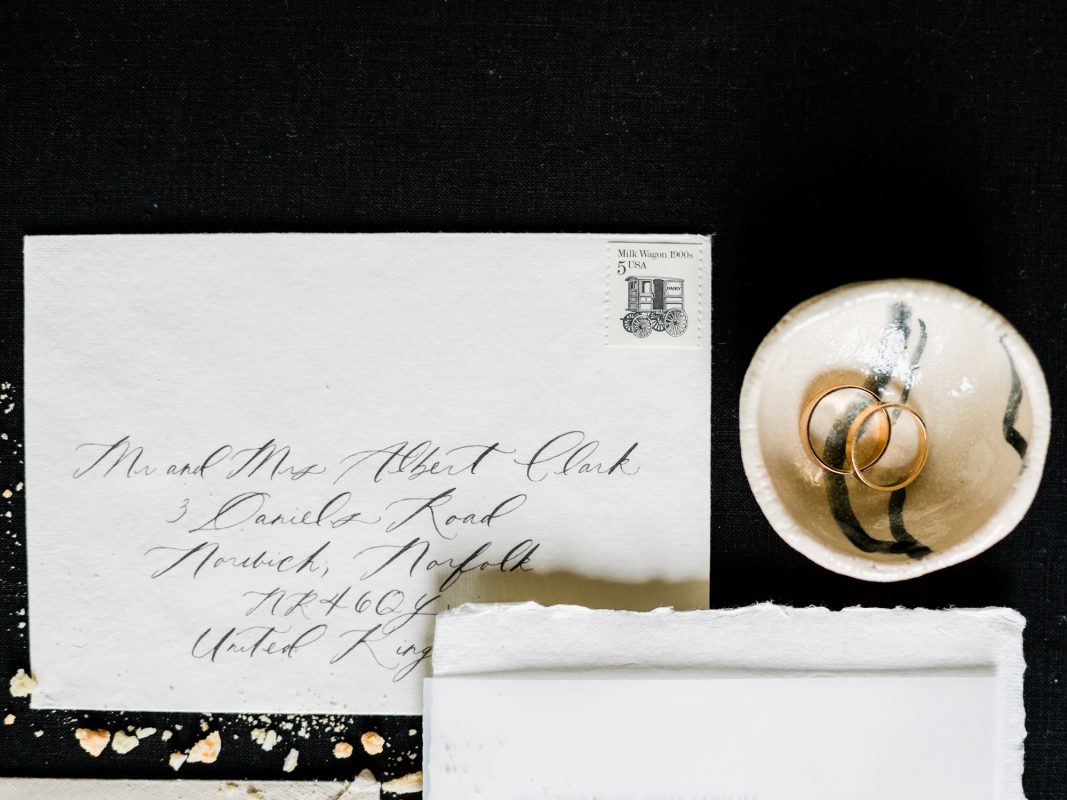 Milk Wagon 1900s
5 USA
DAIRY
Mr and Mrs Albert Clark
3 Daniels Road
Norwich, Norfolk
NR4 6QY
United King